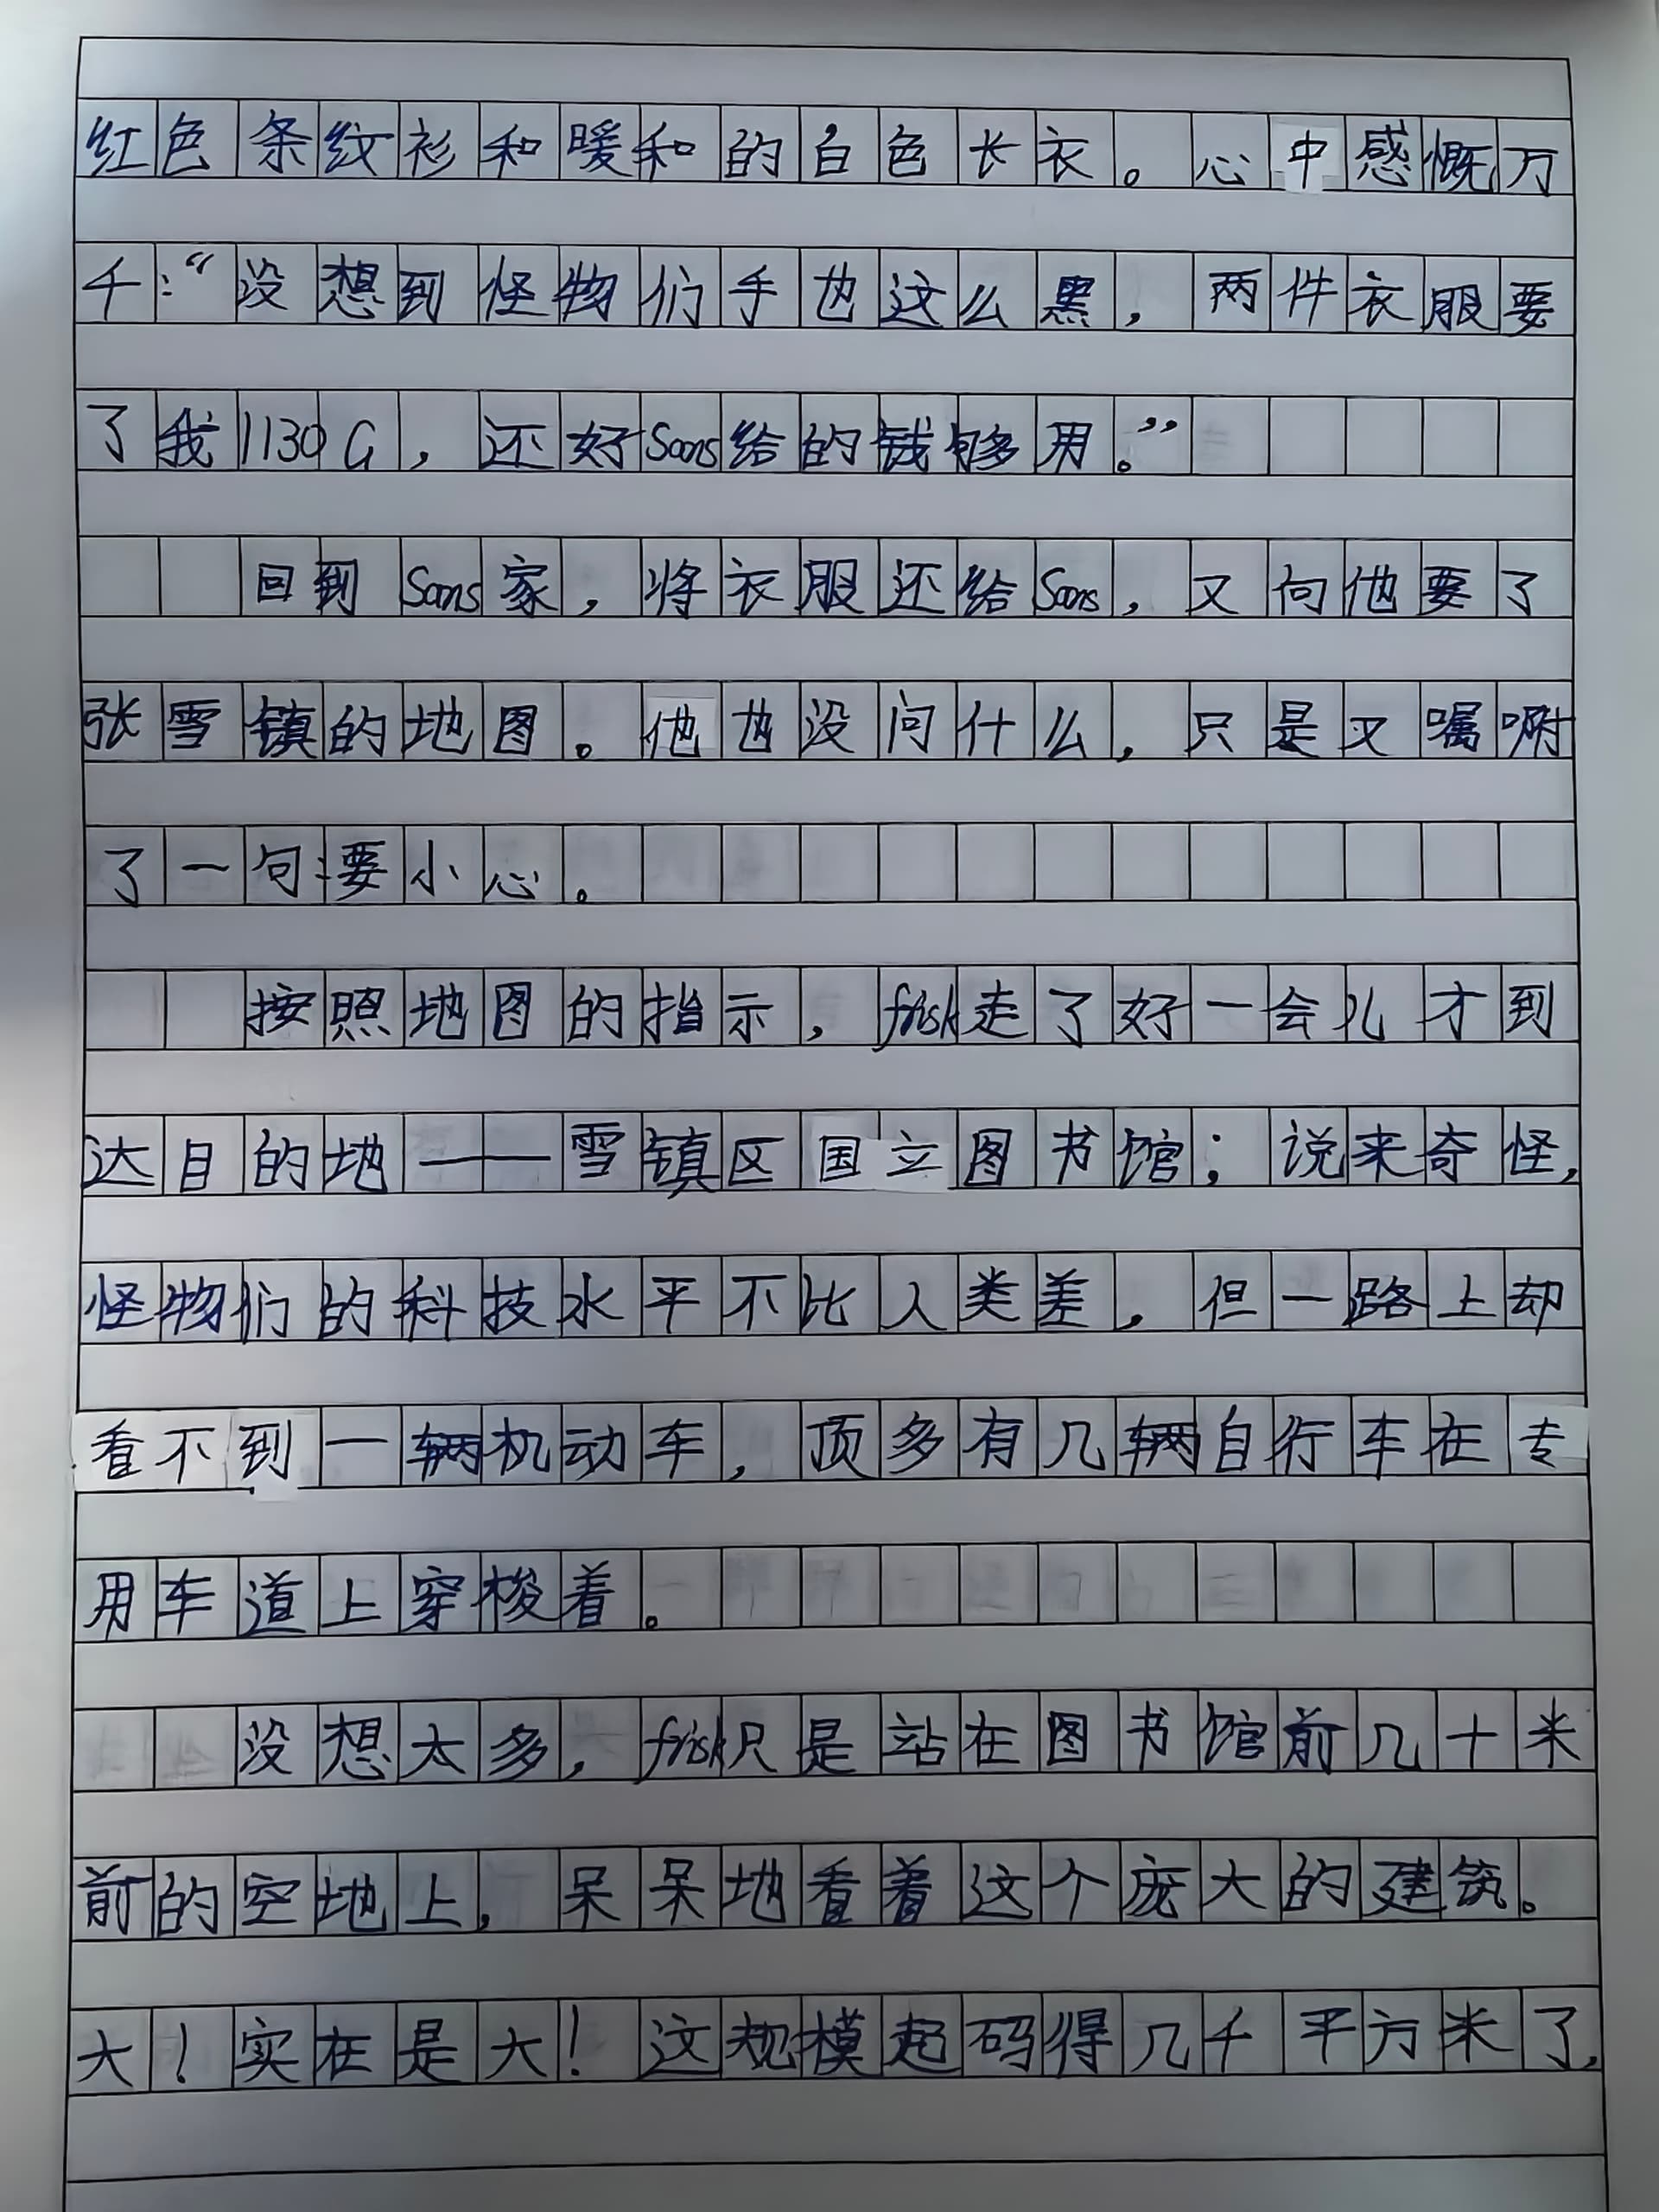 红色条纹衫和暖和的白色长衣。心中感慨万
千:“没想到怪物们手也这么黑，两件衣服要
了我1130G，还好Sans给的钱够用。”
回到Sans家，将衣服还给Sans，又向他要了
张雪镇的地图。他也没问什么，只是又嘱咐
了一句:要小心。
按照地图的指示，frisk走了好一会儿才到
达目的地——雪镇区国立图书馆；说来奇怪，
怪物们的科技水平不比人类差，但一路上却
看不到一辆机动车，顶多有几辆自行车在专
用车道上穿梭着。
没想太多，frisk只是站在图书馆前几十米
前的空地上，呆呆地看着这个庞大的建筑。
大！实在是大！这规模起码得几千平方米了，